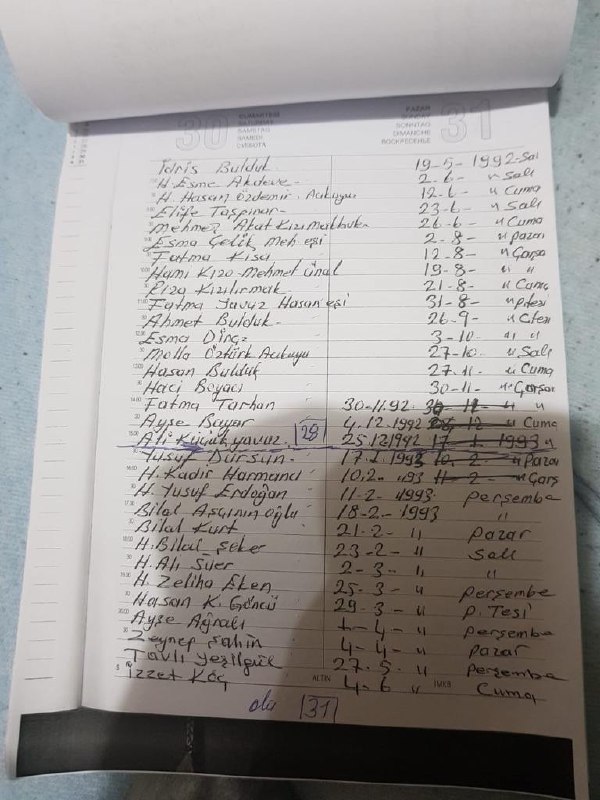 30 CUMARTESI SATURDAY SAMSTAG SAMEDI СУББОТА
PAZAR SUNDAY SONNTAG DIMANCHE ВОСКРЕСЕНЬЕ 31
İdris Bulduk 19-5-1992-Salı
H. Esme Akdeve- 2-6- " Salı
H. Hasan Özdemir Acıkuyu 12-6- " Cuma
Elife Taşpınar- 23-6- " Salı
Mehmet Akat Kızı 26-6- " Cuma
Esma Çelik Meh. eşi 2-8- " Pazar
Fatma Kısa 12-8- " Çarşa
Hamı Kızo Mehmet Ünal 19-8- " "
Rıza Kızılırmak 21-8- " Cuma
Fatma Yavuz Hasan eşi 31-8- " P.tesi
Ahmet Bulduk- 26-9- " C.tesi
Esma Dinç- 3-10- " "
Molla Öztürk Acıkuyu 27-10- " Salı
Hasan Bulduk 27-11- " Cuma
Hacı Boyacı 30-11- " Çarşan
Fatma Tarhan 30-11.92. "
Ayşe Bayar 4.12.1992 12 " Cuma
Ali Küçükyavuz 28 25.12.1992 17-1-1993 "
Yusuf Dursun 17-1-1993 10-2- " Pazar
H. Kadir Harmancı 10.2- "93 11-2- " Çarş
H. Yusuf Erdoğan 11-2-1993- Perşembe
Bilal Aşçının oğlu 18-2-1993 "
Bilal Kurt 21-2- " Pazar
H. Bilal Şeker 23-2- " Salı
H. Ali Süer 2-3- " "
H. Zeliha Eken 25-3- " Perşembe
Hasan K. Göncü 29-3- " P. Tesi
Ayşe Ağralı 1-4- " Perşembe
Zeynep Şahin 4-4- " Pazar
Tavlı Yeşilgül 27-5- " Perşembe
İzzet Koç ALTIN 4-6 " İMKB Cuma
31